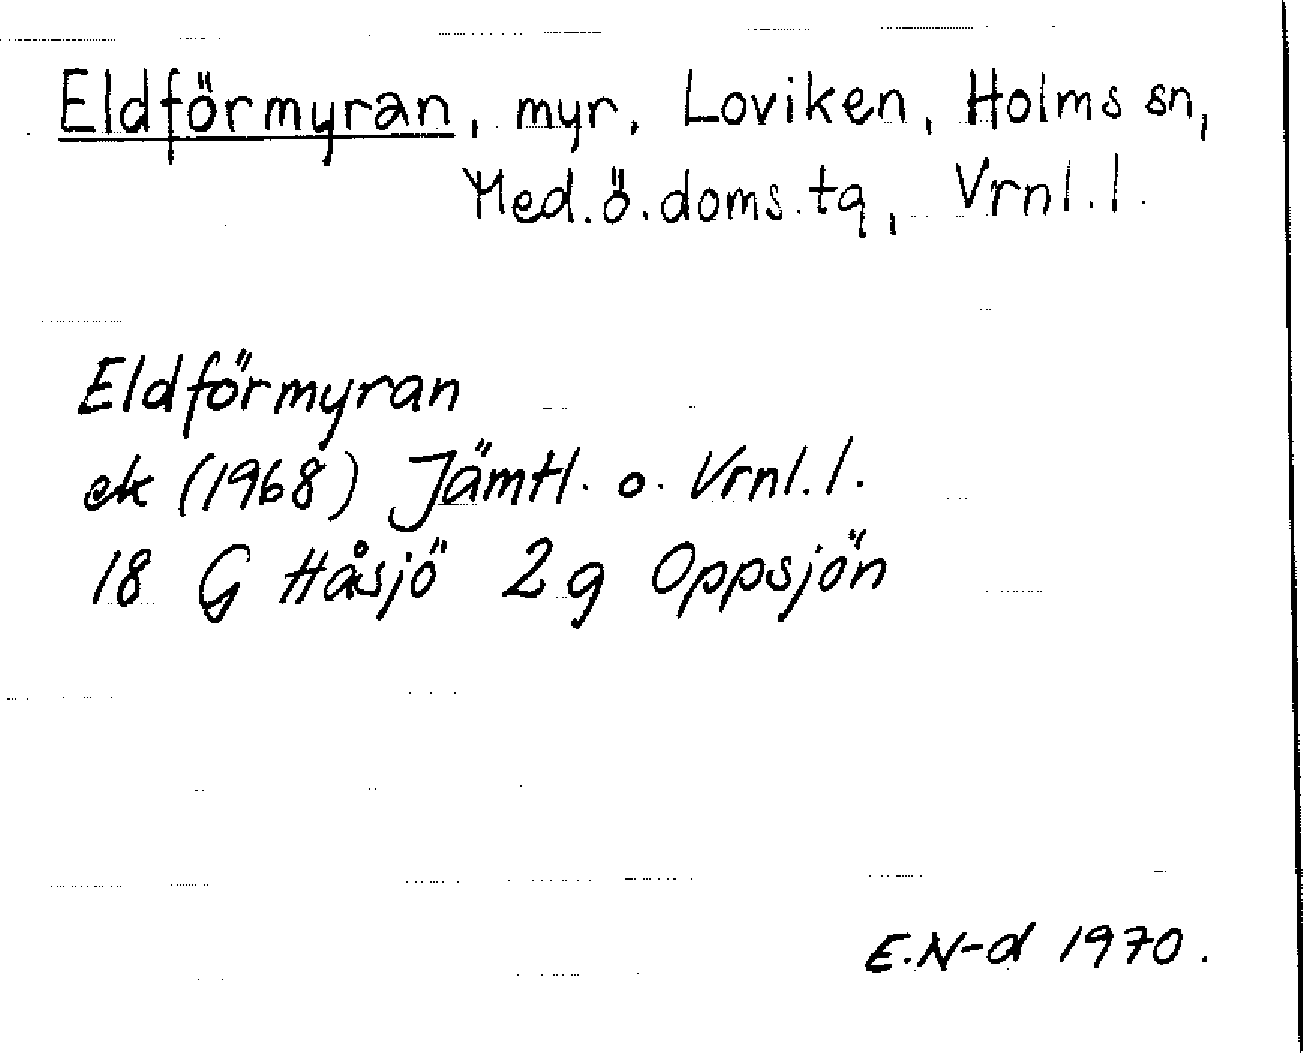 Eldförmyran, myr, Loviken, Holms sn,
Med.ö.doms.tg, Vrnl.l.
Eldförmyran
ek (1968) Jämtl. o. Vrnl.l.
18 G Håsjö 2g Oppsjön
E.N-d 1970.